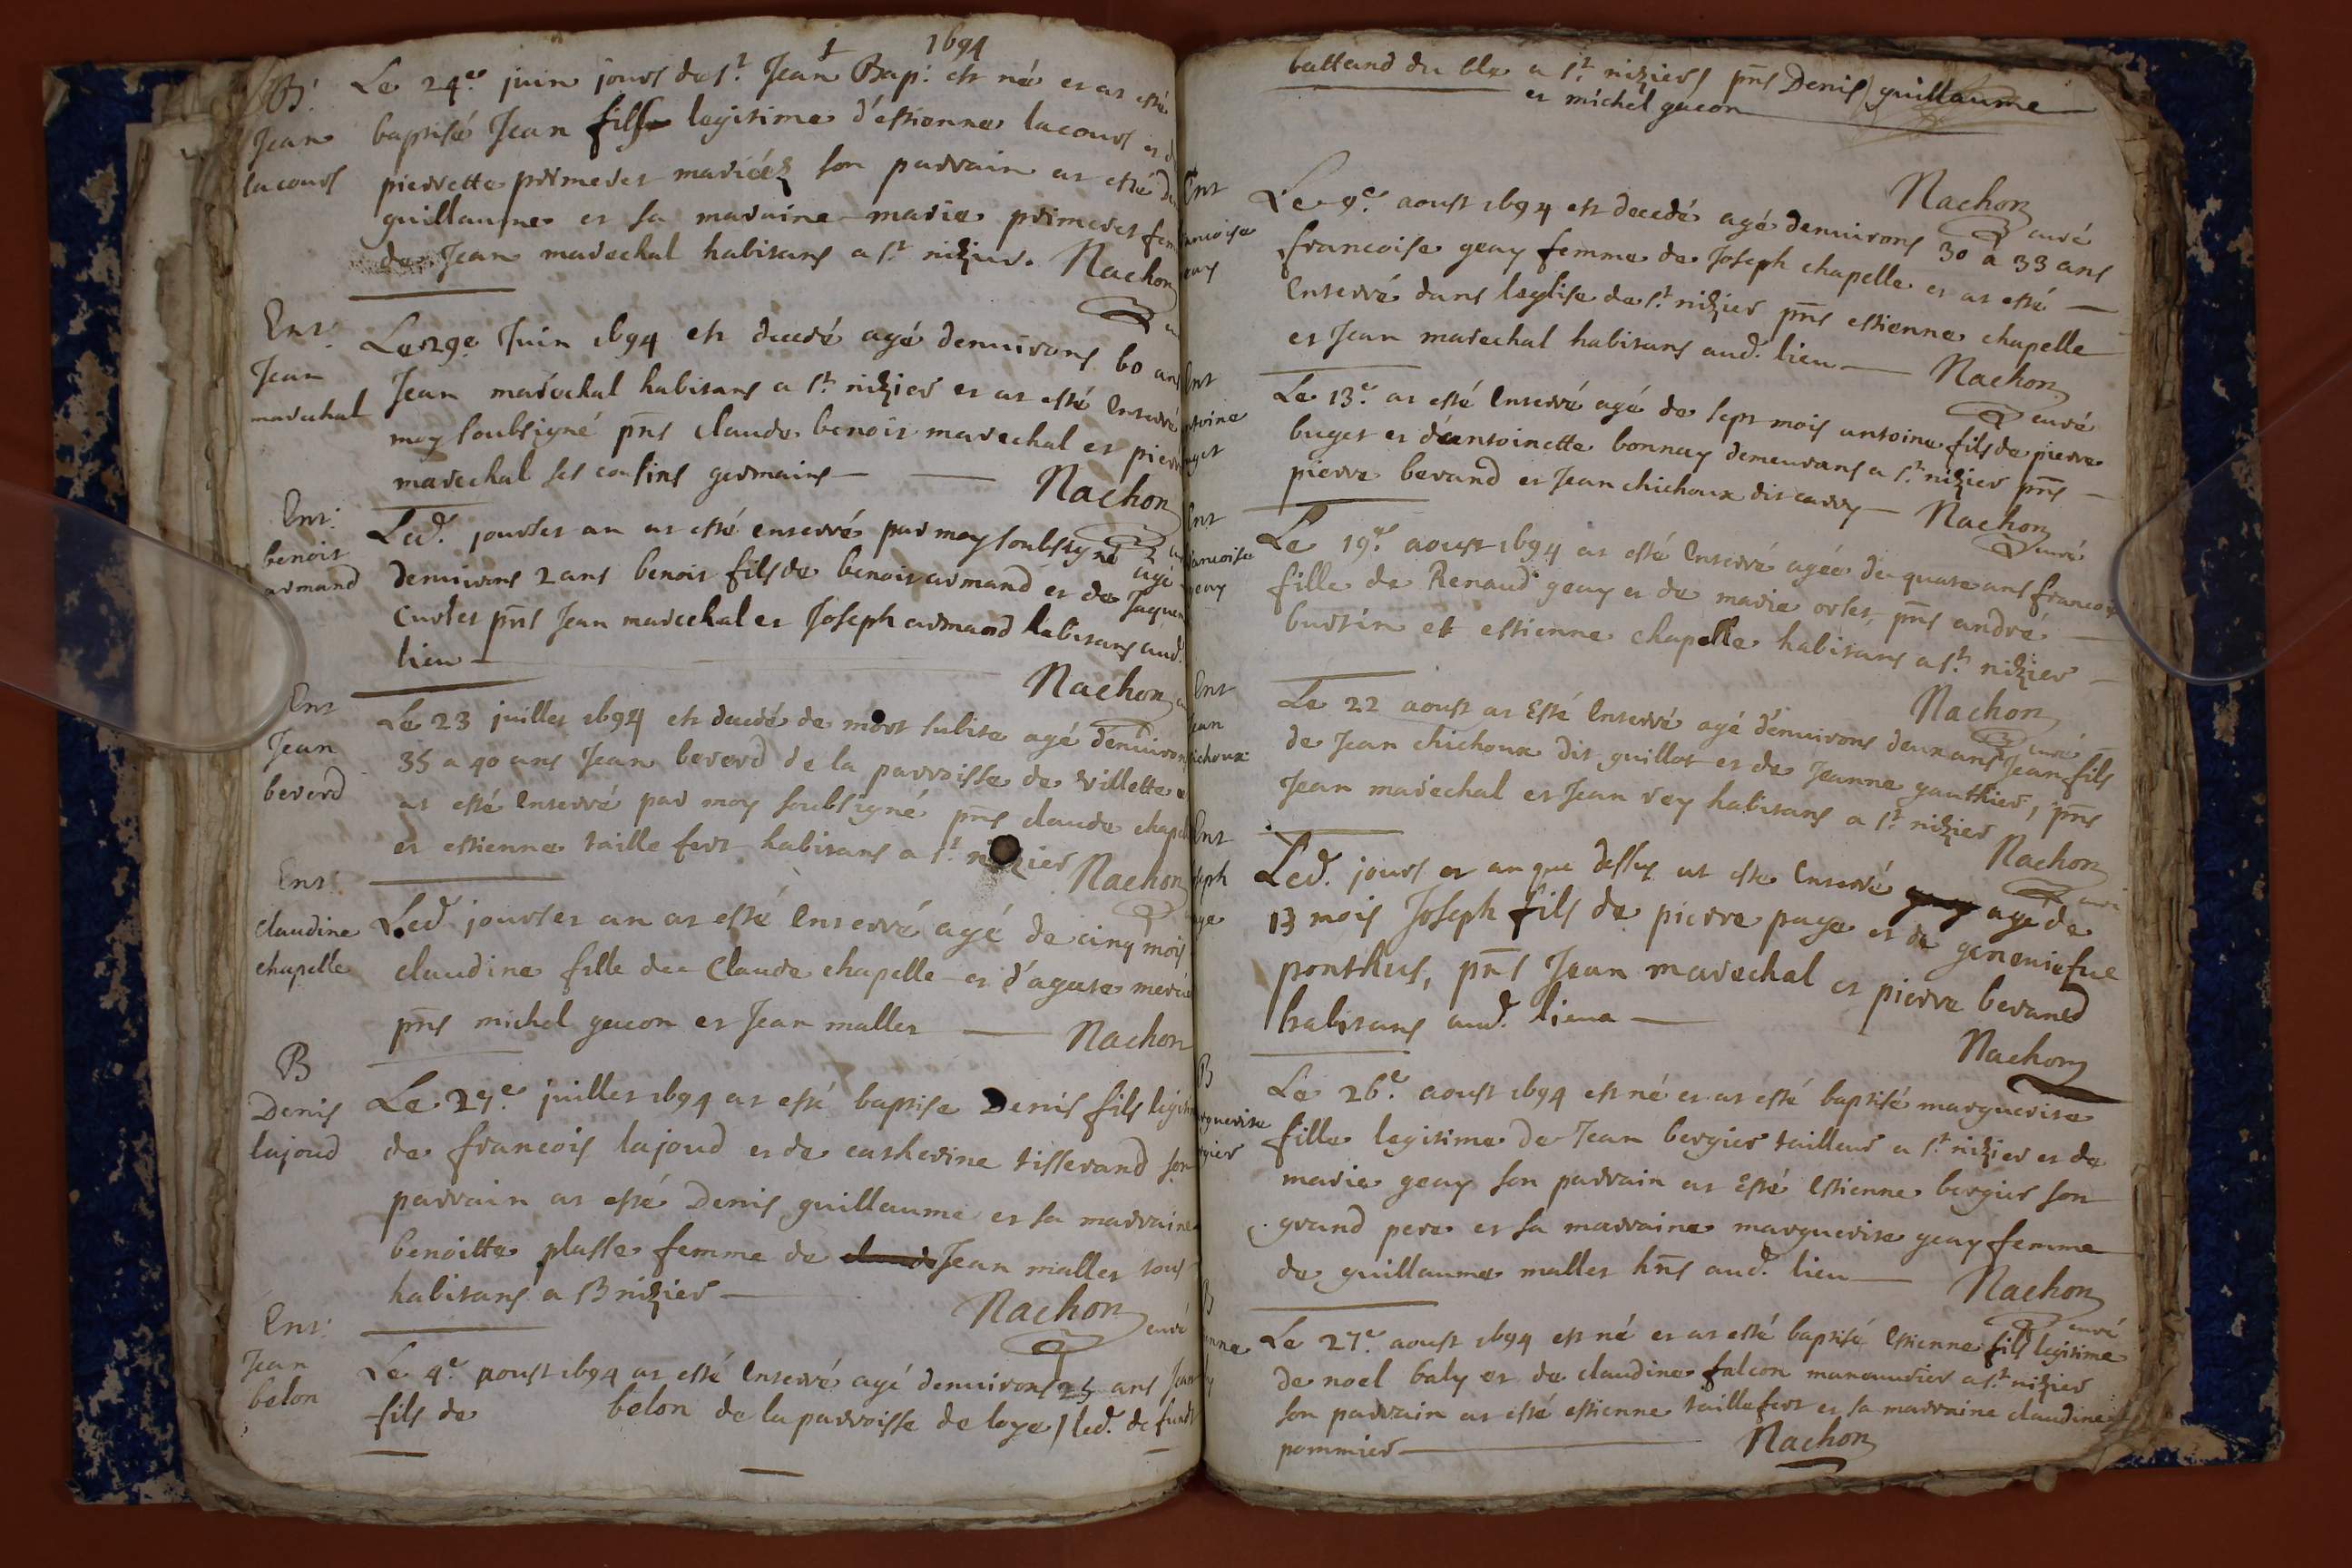 1 1694
B. Le 24e juin jours de st Jean Bap. est né et at esté
Jean baptisé Jean fils legitime d'estienne lacours et d
lacours pierrette primeret mariés son parrain at esté de
guillaume et sa maraine marie primeret fem
de Jean marechal habitans a st nizier. Nachon
Ent. Le 29e Juin 1694 est decedé agé denuirons 60 ans
Jean Jean marechal habitans a st nizier et at esté Enterré
marechal moy soubsigné pñs claude benoit marechal et pierre
marechal ses cousins germains Nachon
Ent. Led. jourset an at esté enterré par moy soubsigné agé
benoit denuirons 2 ans benoit fils de benoit armand et de Jaquem
armand Curtet pñs Jean marechal et Joseph armand habitans aud.
lieu
Nachon
Ent Le 23 juillet 1694 est decedé de mort subite agé denuirons
Jean 35 a 40 ans Jean bererd de la parroisse de villette e
bererd at esté Enterré par moy soubsigné pñs claude chapel
et estienne taille fert habitans a st nizier Nachon
Ent. Led jourset an at esté Enterré agé de cinq mois
claudine claudine fille de Claude chapelle et d'agate mercie
chapelle pñs michel gacon et Jean mallet Nachon
B Le 27e juillet 1694 at esté baptise Denis fils legitim
Denis de francois lajoud et de catherine tisserand son
lajoud parrain at esté Denis guillaume et sa marraine
benoitte plasse femme de claude Jean mallet tous
habitans a St nizier Nachon curé
Ent. Le 4e aoust 1694 at esté Enterré agé denuirons 25 ans Jean
Jean fils de belon de la parroisse de loye / led. defunct
belon
battand du ble a st niziers pñs Denis guillaume
et michel gacon
Nachon curé
Ent Le 9e aoust 1694 est decedé agé denuirons 30 a 33 ans
ancoise francoise geay femme de Joseph chapelle et at esté
eay Enterré dans leglise de st nizier pñs estienne chapelle
et Jean marechal habitans aud. lieu Nachon curé
Ent Le 13e at esté Enterré agé de sept mois antoine fils de pierre
ntoine buget et d'antoinette bonnay demeurans a st nizier pñs
uget pierre berand et Jean chichoux dit carry Nachon curé
Ent Le 19e aoust 1694 at esté Enterré agée de quatre ans francois
rancoise fille de Renaud geay et de marie ortet, pñs andré
geay burtin et estienne chapelle habitans a st nizier
Nachon curé
Ent Le 22 aoust at Esté Enterré agé denuirons deux ans Jean fils
ean de Jean chichoux dit guillot et de Jeanne gauthier, pñs
ichoux Jean marechal et Jean rey habitans a st nizier Nachon curé
Ent Led. jours et an que dessus at este Enterré age de
seph 13 mois Joseph fils de pierre page et de geneniefue
age ponthus, pñs Jean marechal et pierre berand
habitans aud. lieux
Nachon
B Le 26e aoust 1694 est né et at esté baptisé marguerite
rguerite fille legitime de Jean bergier tailleur a st nizier et de
gier marie geay son parrain at Esté Estienne bergier son
grand pere et sa marraine marguerite geay femme
de guillaume mallet hñs aud. lieu Nachon curé
B Le 27e aoust 1694 est né et at esté baptisé Estienne fils legitime
enne de noel baly et de claudine falcon manouurier a st nizier
y son parrain at esté estienne taillefert et sa marraine claudine
pommier Nachon